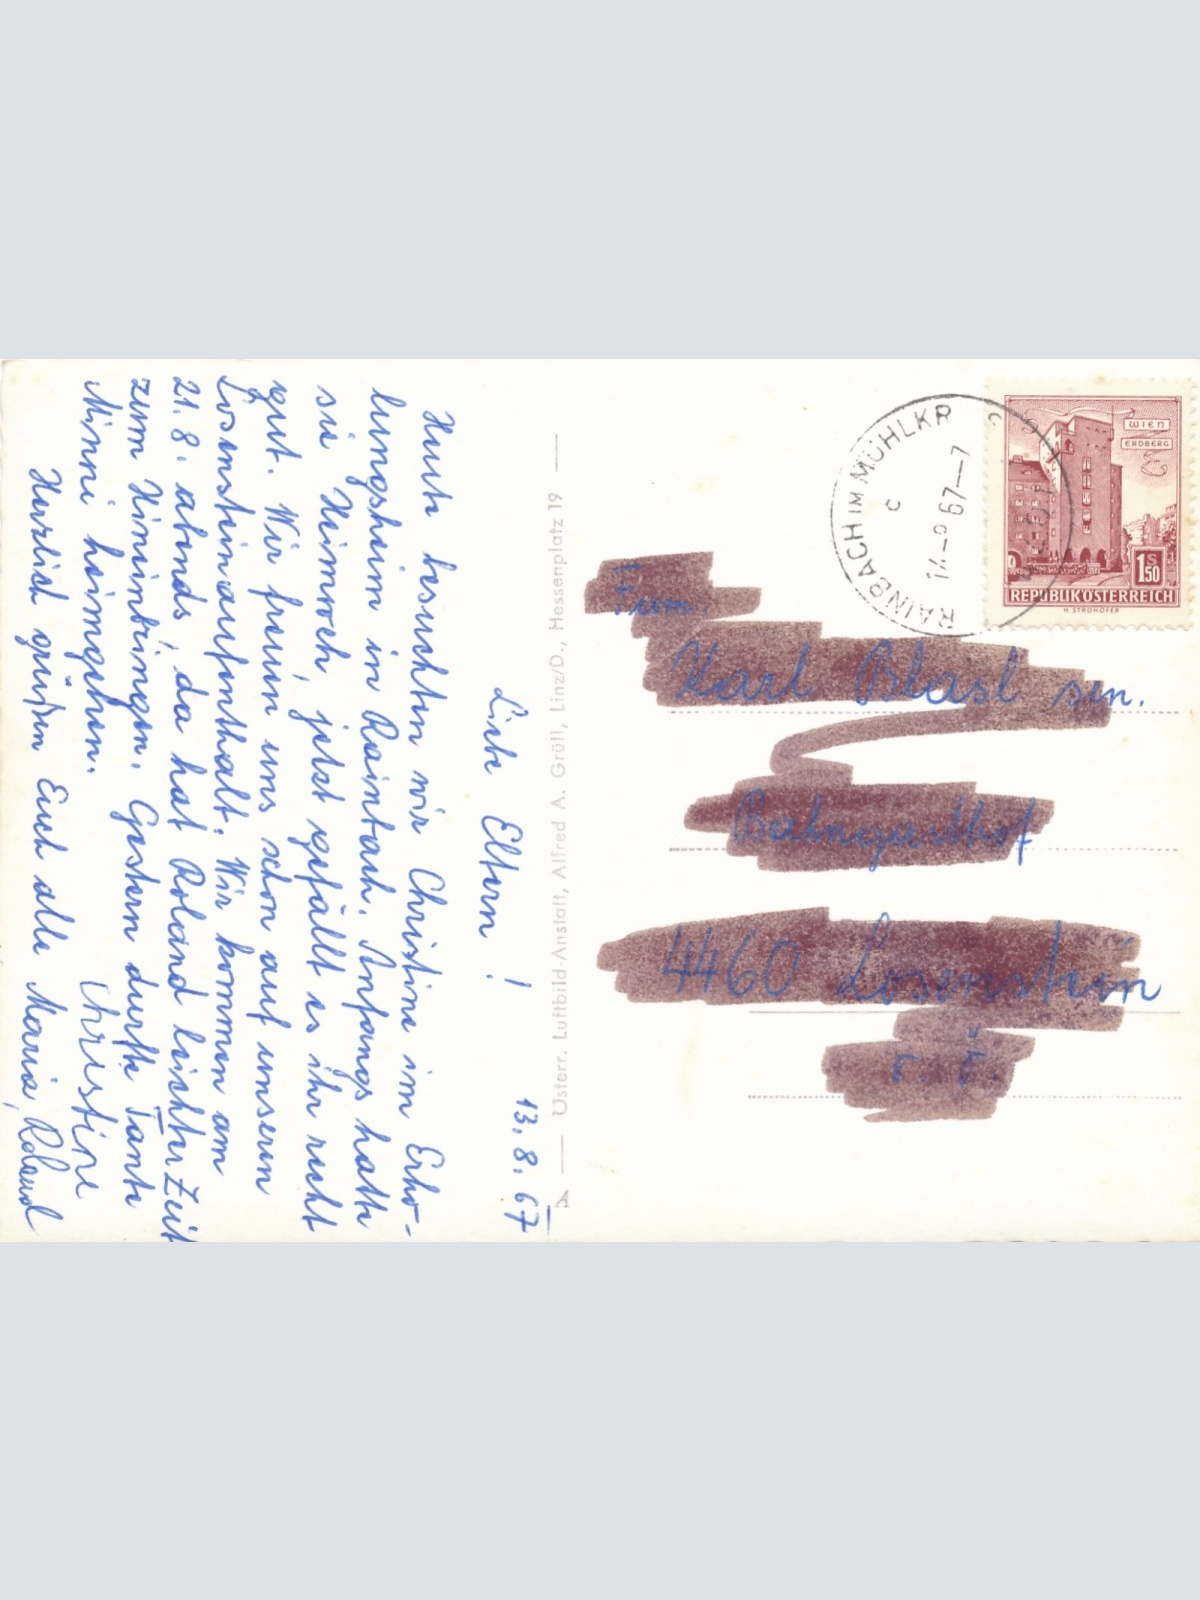 13.8.67
Liebe Eltern!
Heute besuchten wir Christine im Erho-
lungsheim in Rainbach. Anfangs hatte
sie Heimweh, jetzt gefällt es ihr recht
gut. Wir freuen uns schon auf unseren
Losensteinaufenthalt. Wir kommen am
21.8. abends, da hat Roland leichter Zeit
zum Hineinbringen. Gestern durfte Tante
Minni heimgehen.
Christine
Herzlich grüßen Euch alle Maria, Roland
A Österr. Luftbild-Anstalt, Alfred A. Grüll, Linz/D., Hessenplatz 19
RAINBACH IM MÜHLKR
c
WIEN
ERDBERG
S
1.50
REPUBLIK ÖSTERREICH
H. STROHOFER
Fam.
Karl Blasl sen.
Bahngasthof
4460 Losenstein